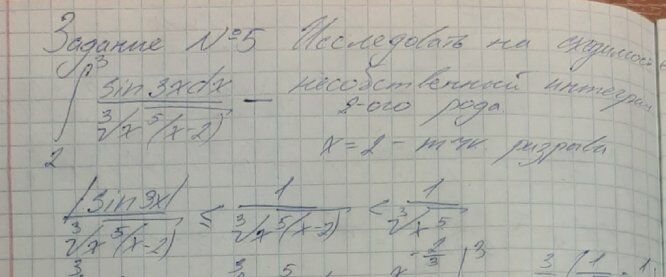 Задание №5 Исследовать на сходимость
∫₂³ sin3xdx / ∛(x⁵(x-2)) — несобственный интеграл
2-ого рода
x = 2 - тчк. разрыва
|sin3x| / ∛(x⁵(x-2)) ≤ 1 / ∛(x⁵(x-2)) < 1 / ∛(x⁵)